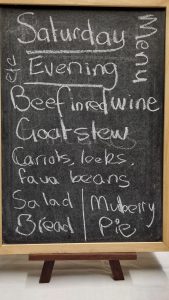 Saturday
Evening
Menu
etc
Beef in red wine
Goat stew
Carrots, leeks,
fava beans
Salad
Bread
Mulberry
Pie